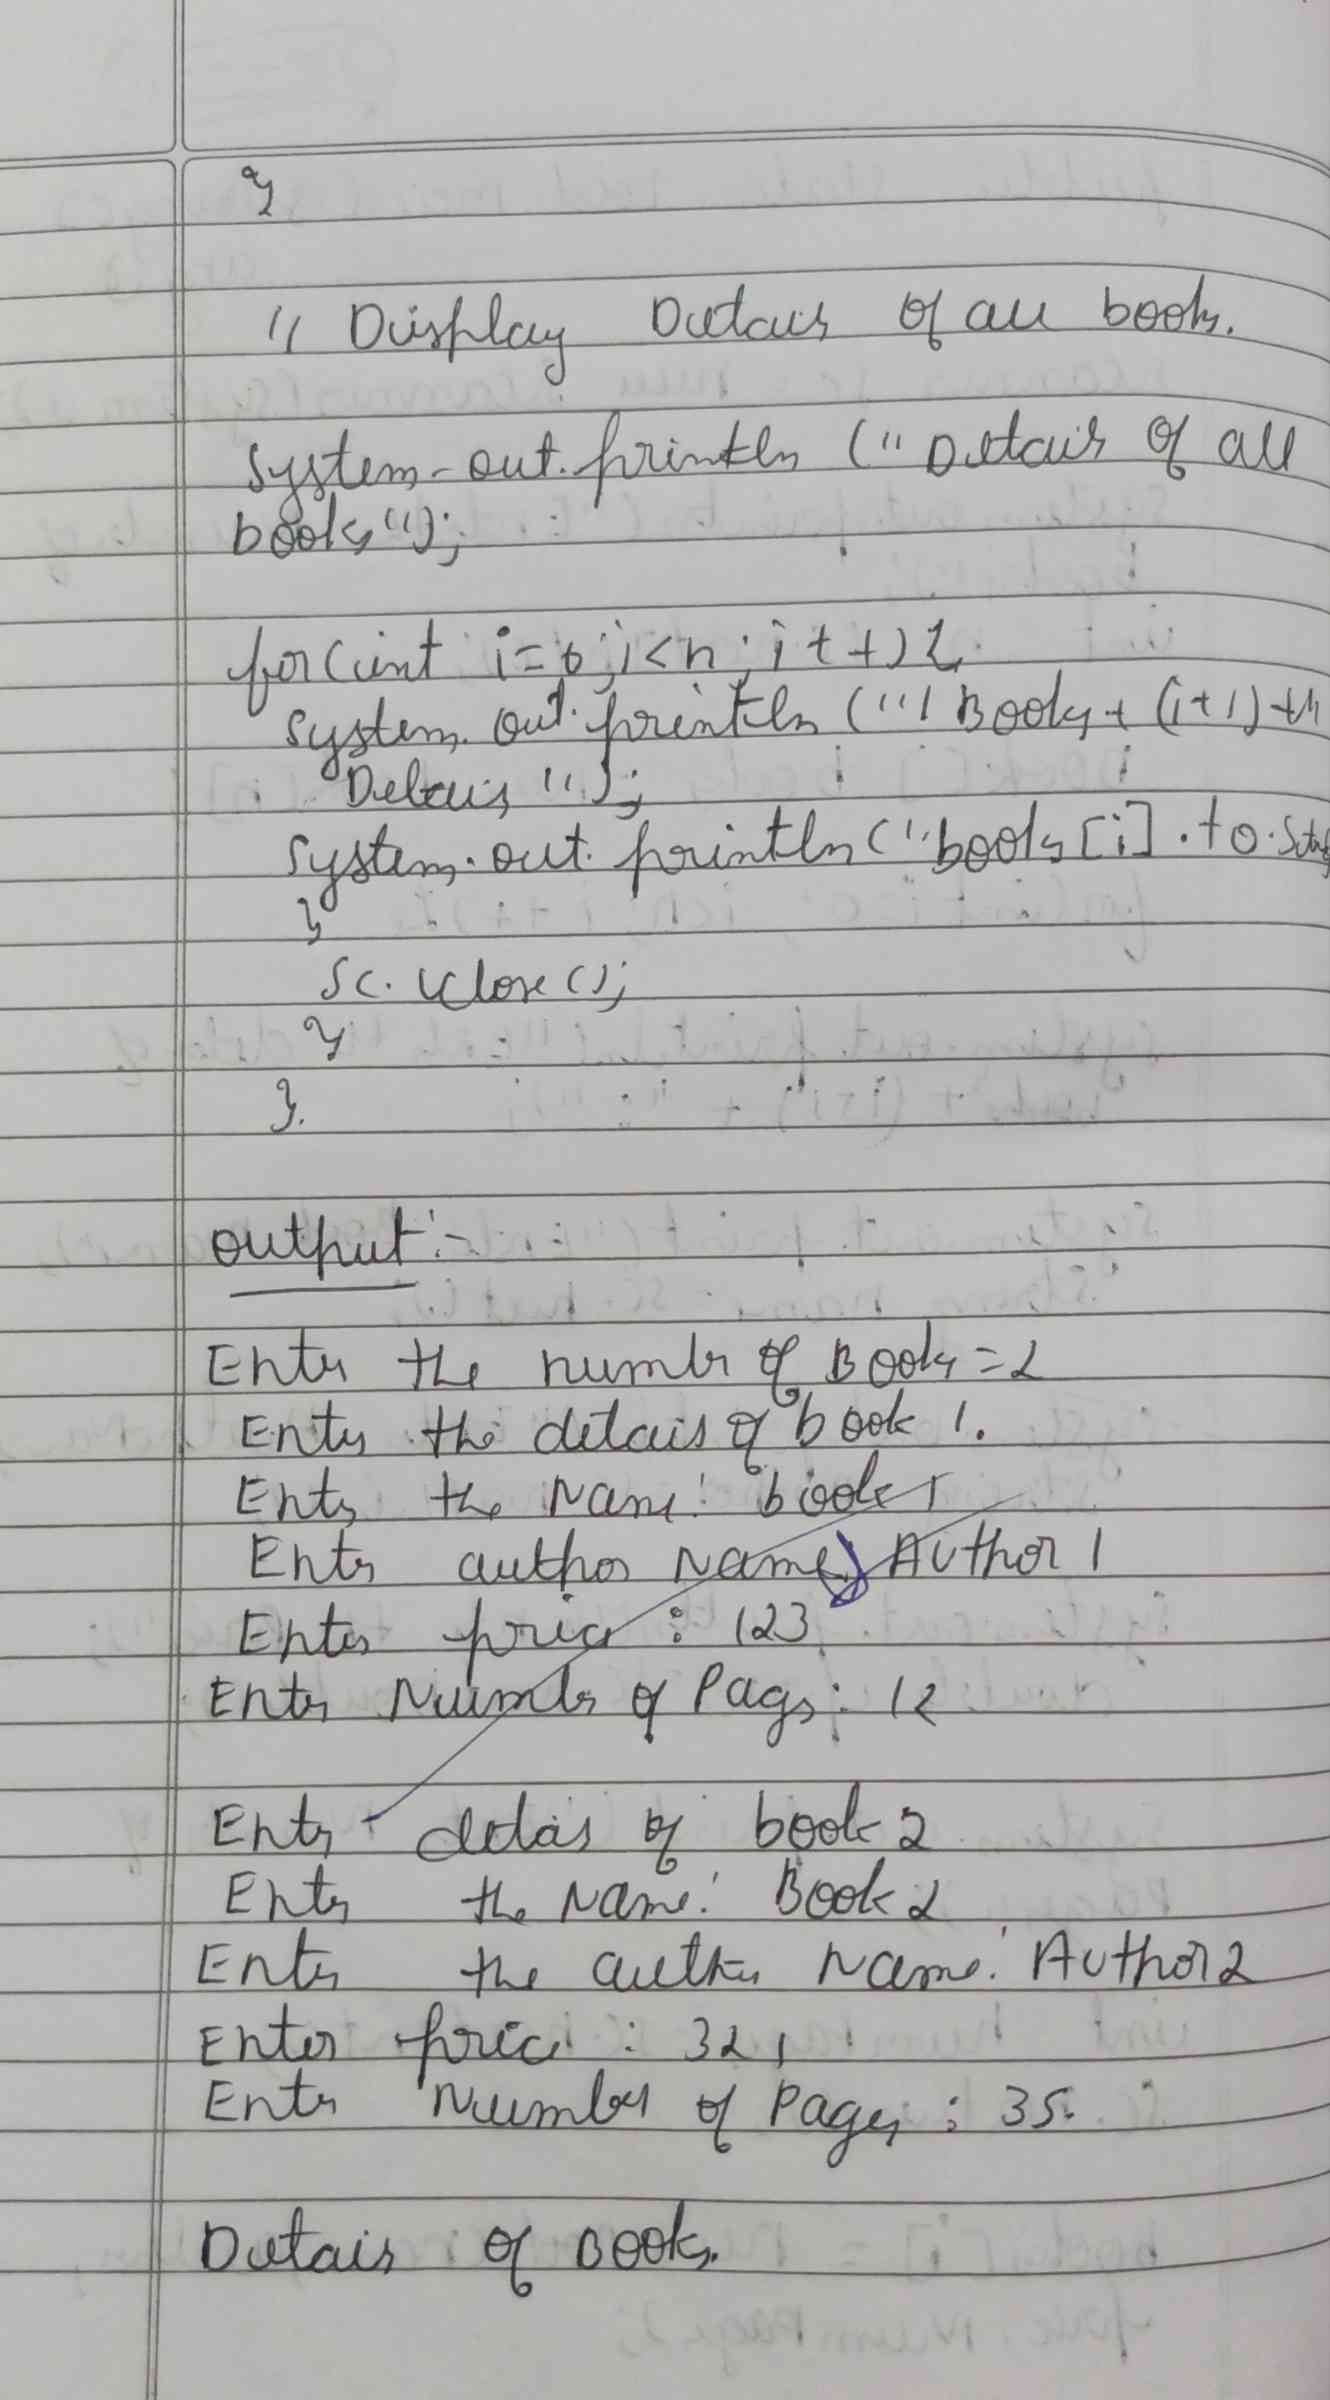 }
// Display Details of all books.
System.out.println ("Details of all
books");
for(int i=0; i<n; i++){
System.out.println ("1 Books + (i+1) +"
Details ");
System.out.println("books[i].to.
}
Sc.close();
}
}.
output:-
Enter the number of Books = 2
Enter the details of book 1.
Enter the Name: book 1
Enter author Name: Author 1
Enter price : 123
Enter Number of Pages : 12
Enter details of book 2
Enter the Name: Book 2
Enter the author Name: Author 2
Enter price : 321
Enter Number of Pages : 35.
Details of Books.